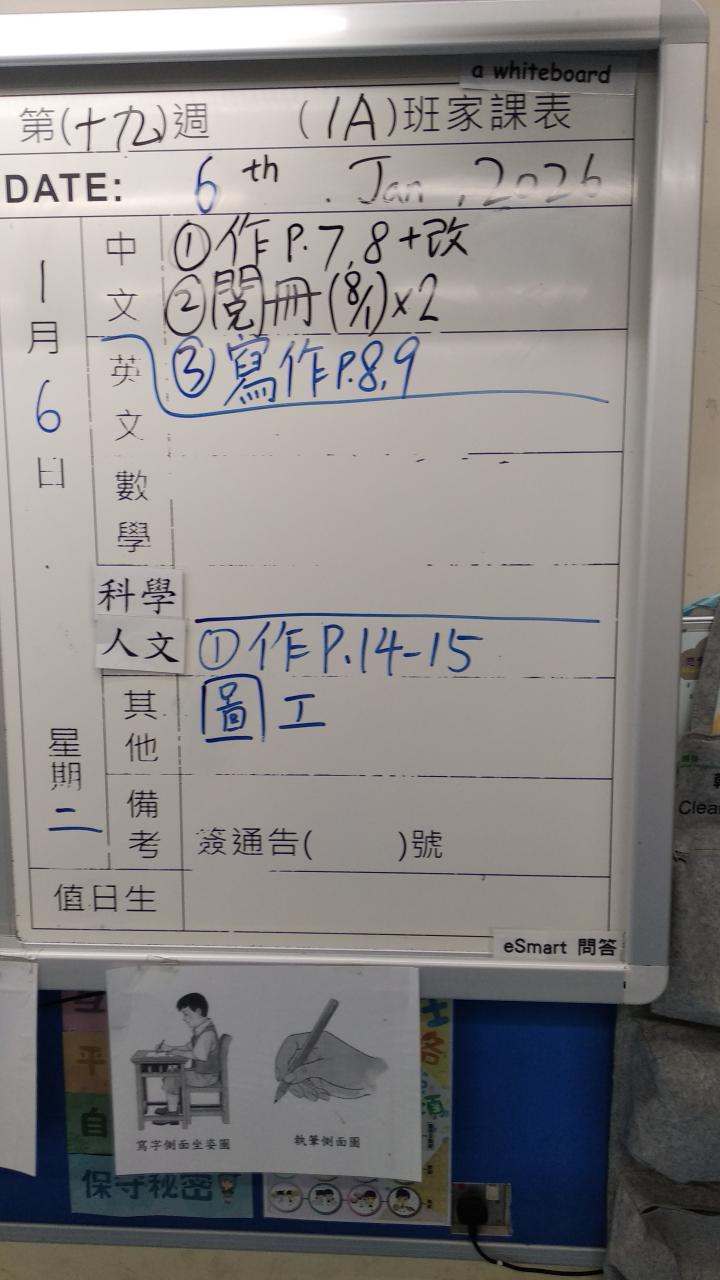 a whiteboard
第(十九)週 (1A)班家課表
DATE: 6th. Jan, 2026
1月6日 星期二
中文 ①作P.7,8+改
②閱冊(8/1)x2
③寫作P.8,9
英文
數學
科學
人文 ①作P.14-15
其他 圖工
備考 簽通告( )號
值日生
eSmart 問答
寫字側面坐姿圖 執筆側面圖
平
自
保守秘密
Clea